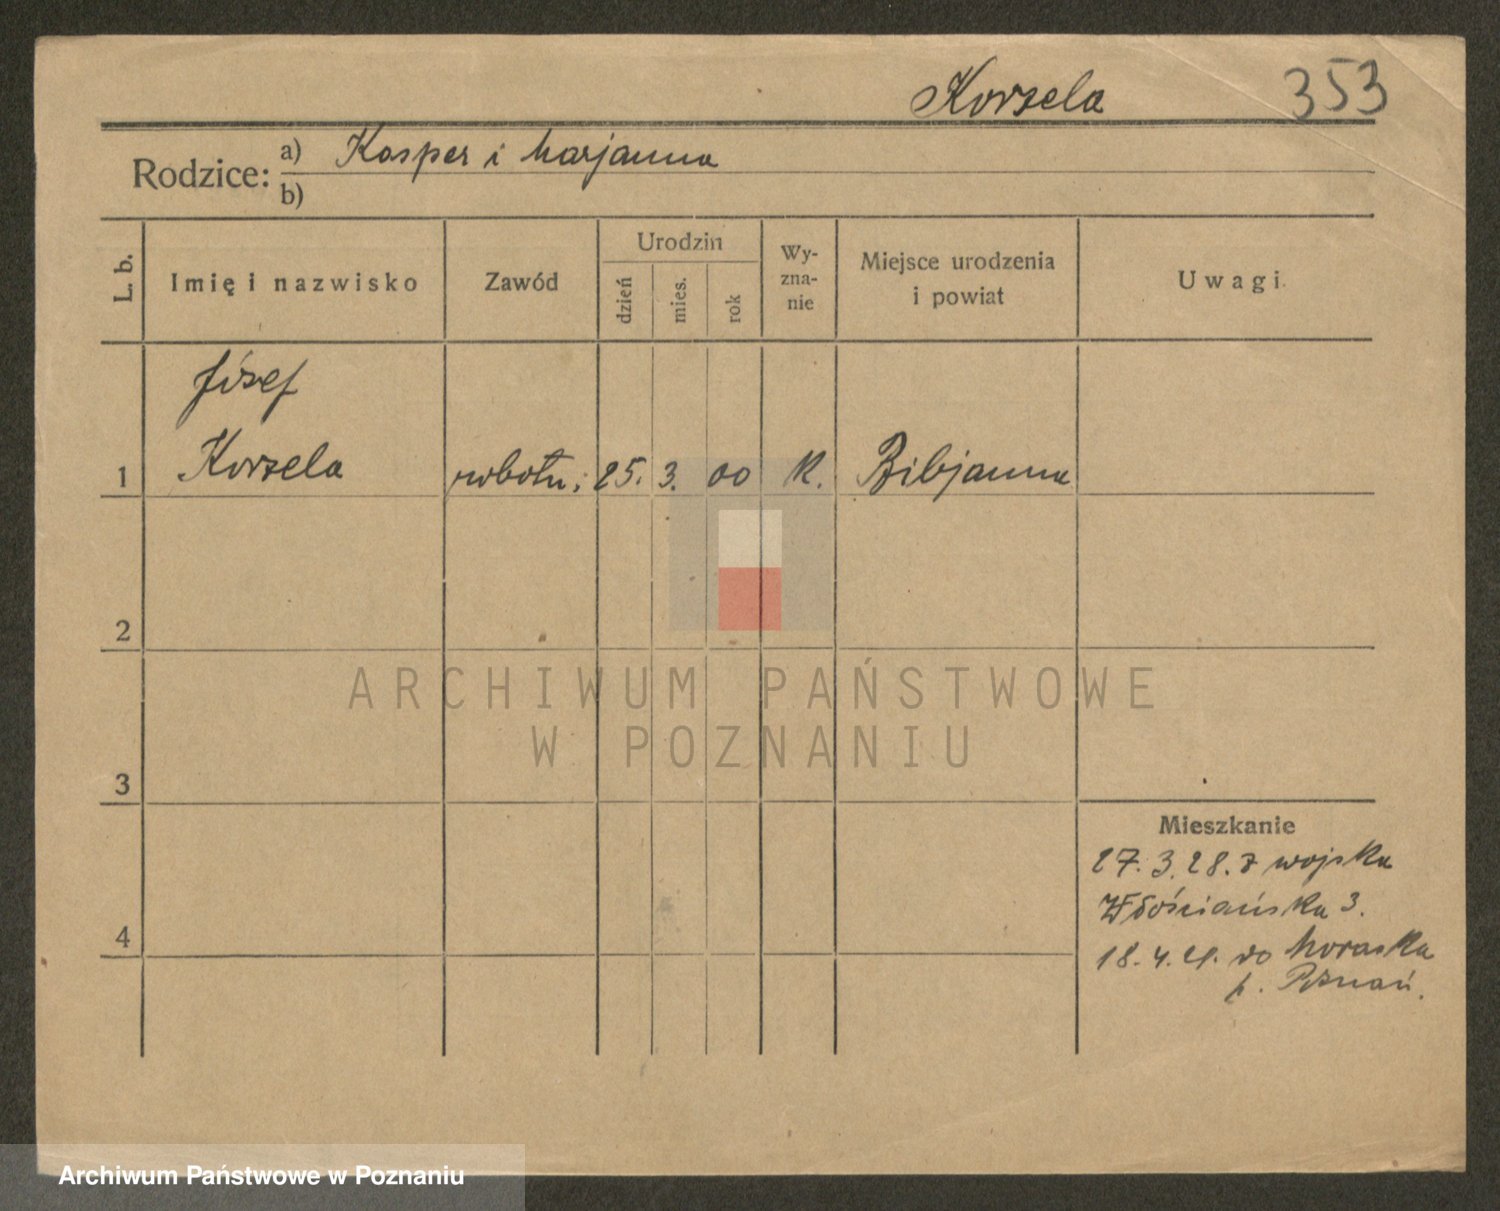 Korzela 353
Rodzice: a) Kasper i Marjanna
b)
L. b.
Imię i nazwisko
Zawód
Urodzin
dzień
mies.
rok
Wy-
zna-
nie
Miejsce urodzenia
i powiat
Uwagi
Józef
1 Korzela robotn. 25. 3. 00 k. Bibjanna
2
3
4
Mieszkanie
27.3.28. z wojska
Włościańska 3.
18.4. do Moraska
p. Poznań.
ARCHIWUM PAŃSTWOWE
W POZNANIU
Archiwum Państwowe w Poznaniu